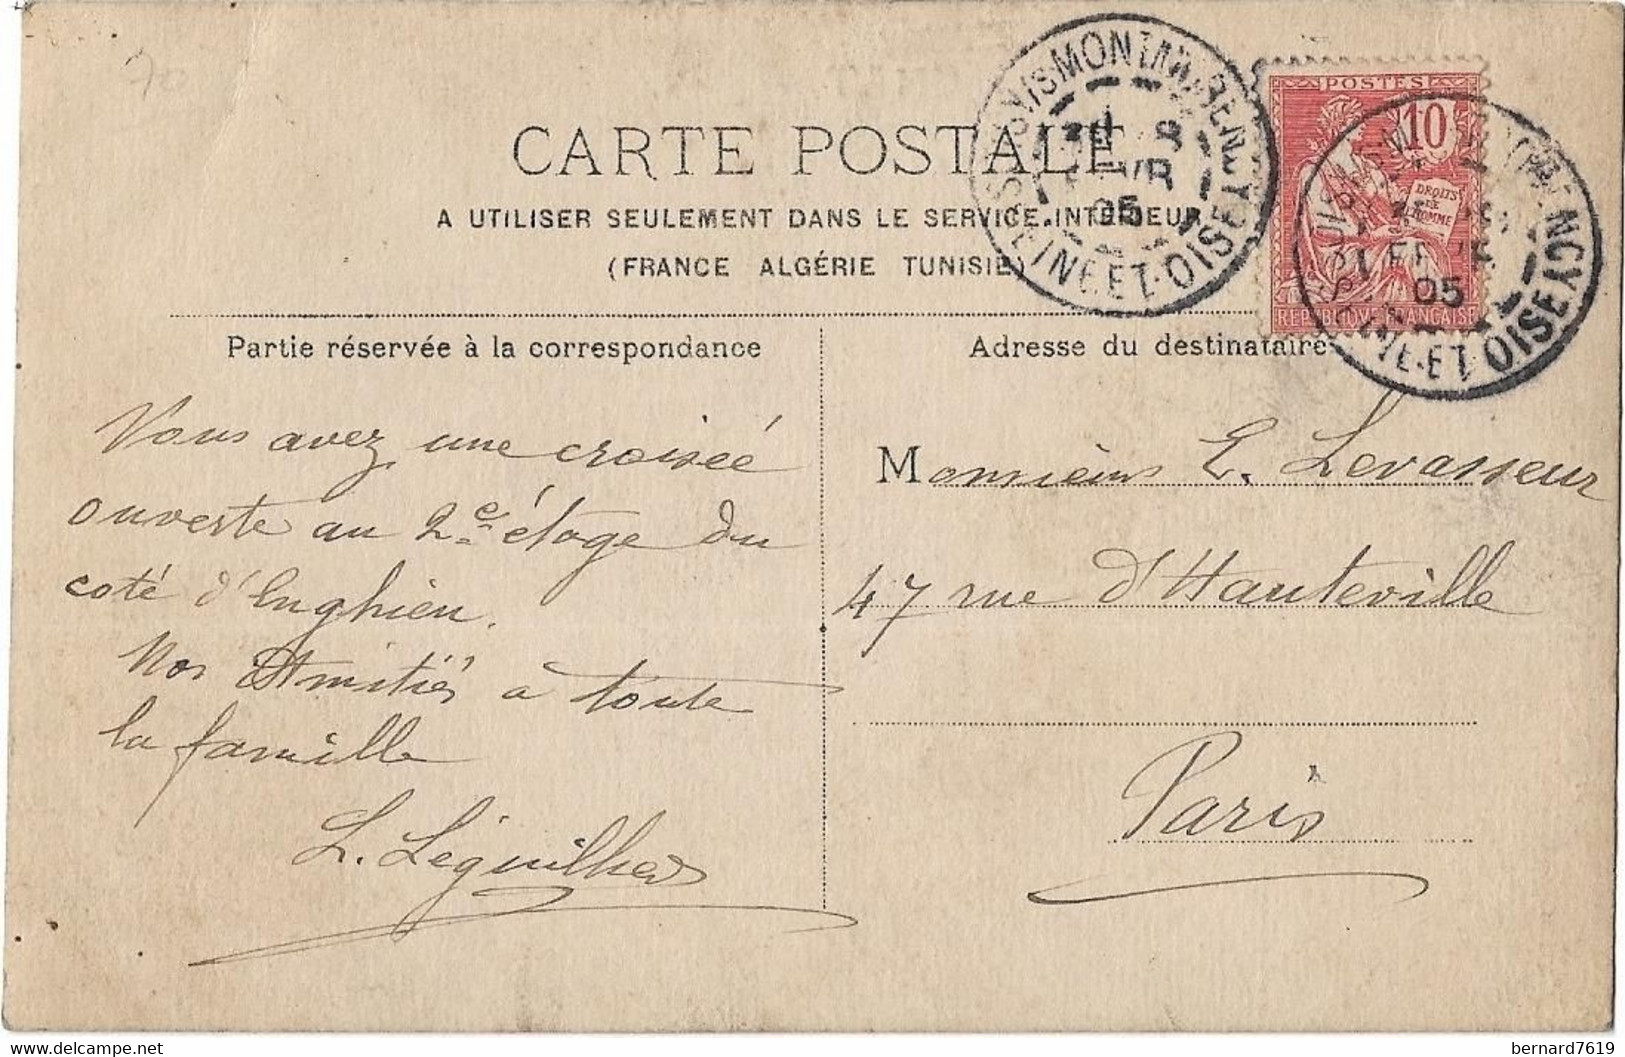 70
CARTE POSTALE
A UTILISER SEULEMENT DANS LE SERVICE INTÉRIEUR
(FRANCE ALGÉRIE TUNISIE)
POSTES
10
DROITS
DE
L'HOMME
REPUBLIQUE FRANÇAISE
MONTMORENCY
SEINE-ET-OISE
05
MONTMORENCY
SEINE-ET-OISE
05
Partie réservée à la correspondance
Vous avez une croisée
ouverte au 2e étage du
coté d'Enghien.
Nos Amitiés à toute
la famille
L. Léguilher
Adresse du destinataire
Monsieur E. Levasseur
47 rue d'Hauteville
Paris
delcampe.net
bernard7619